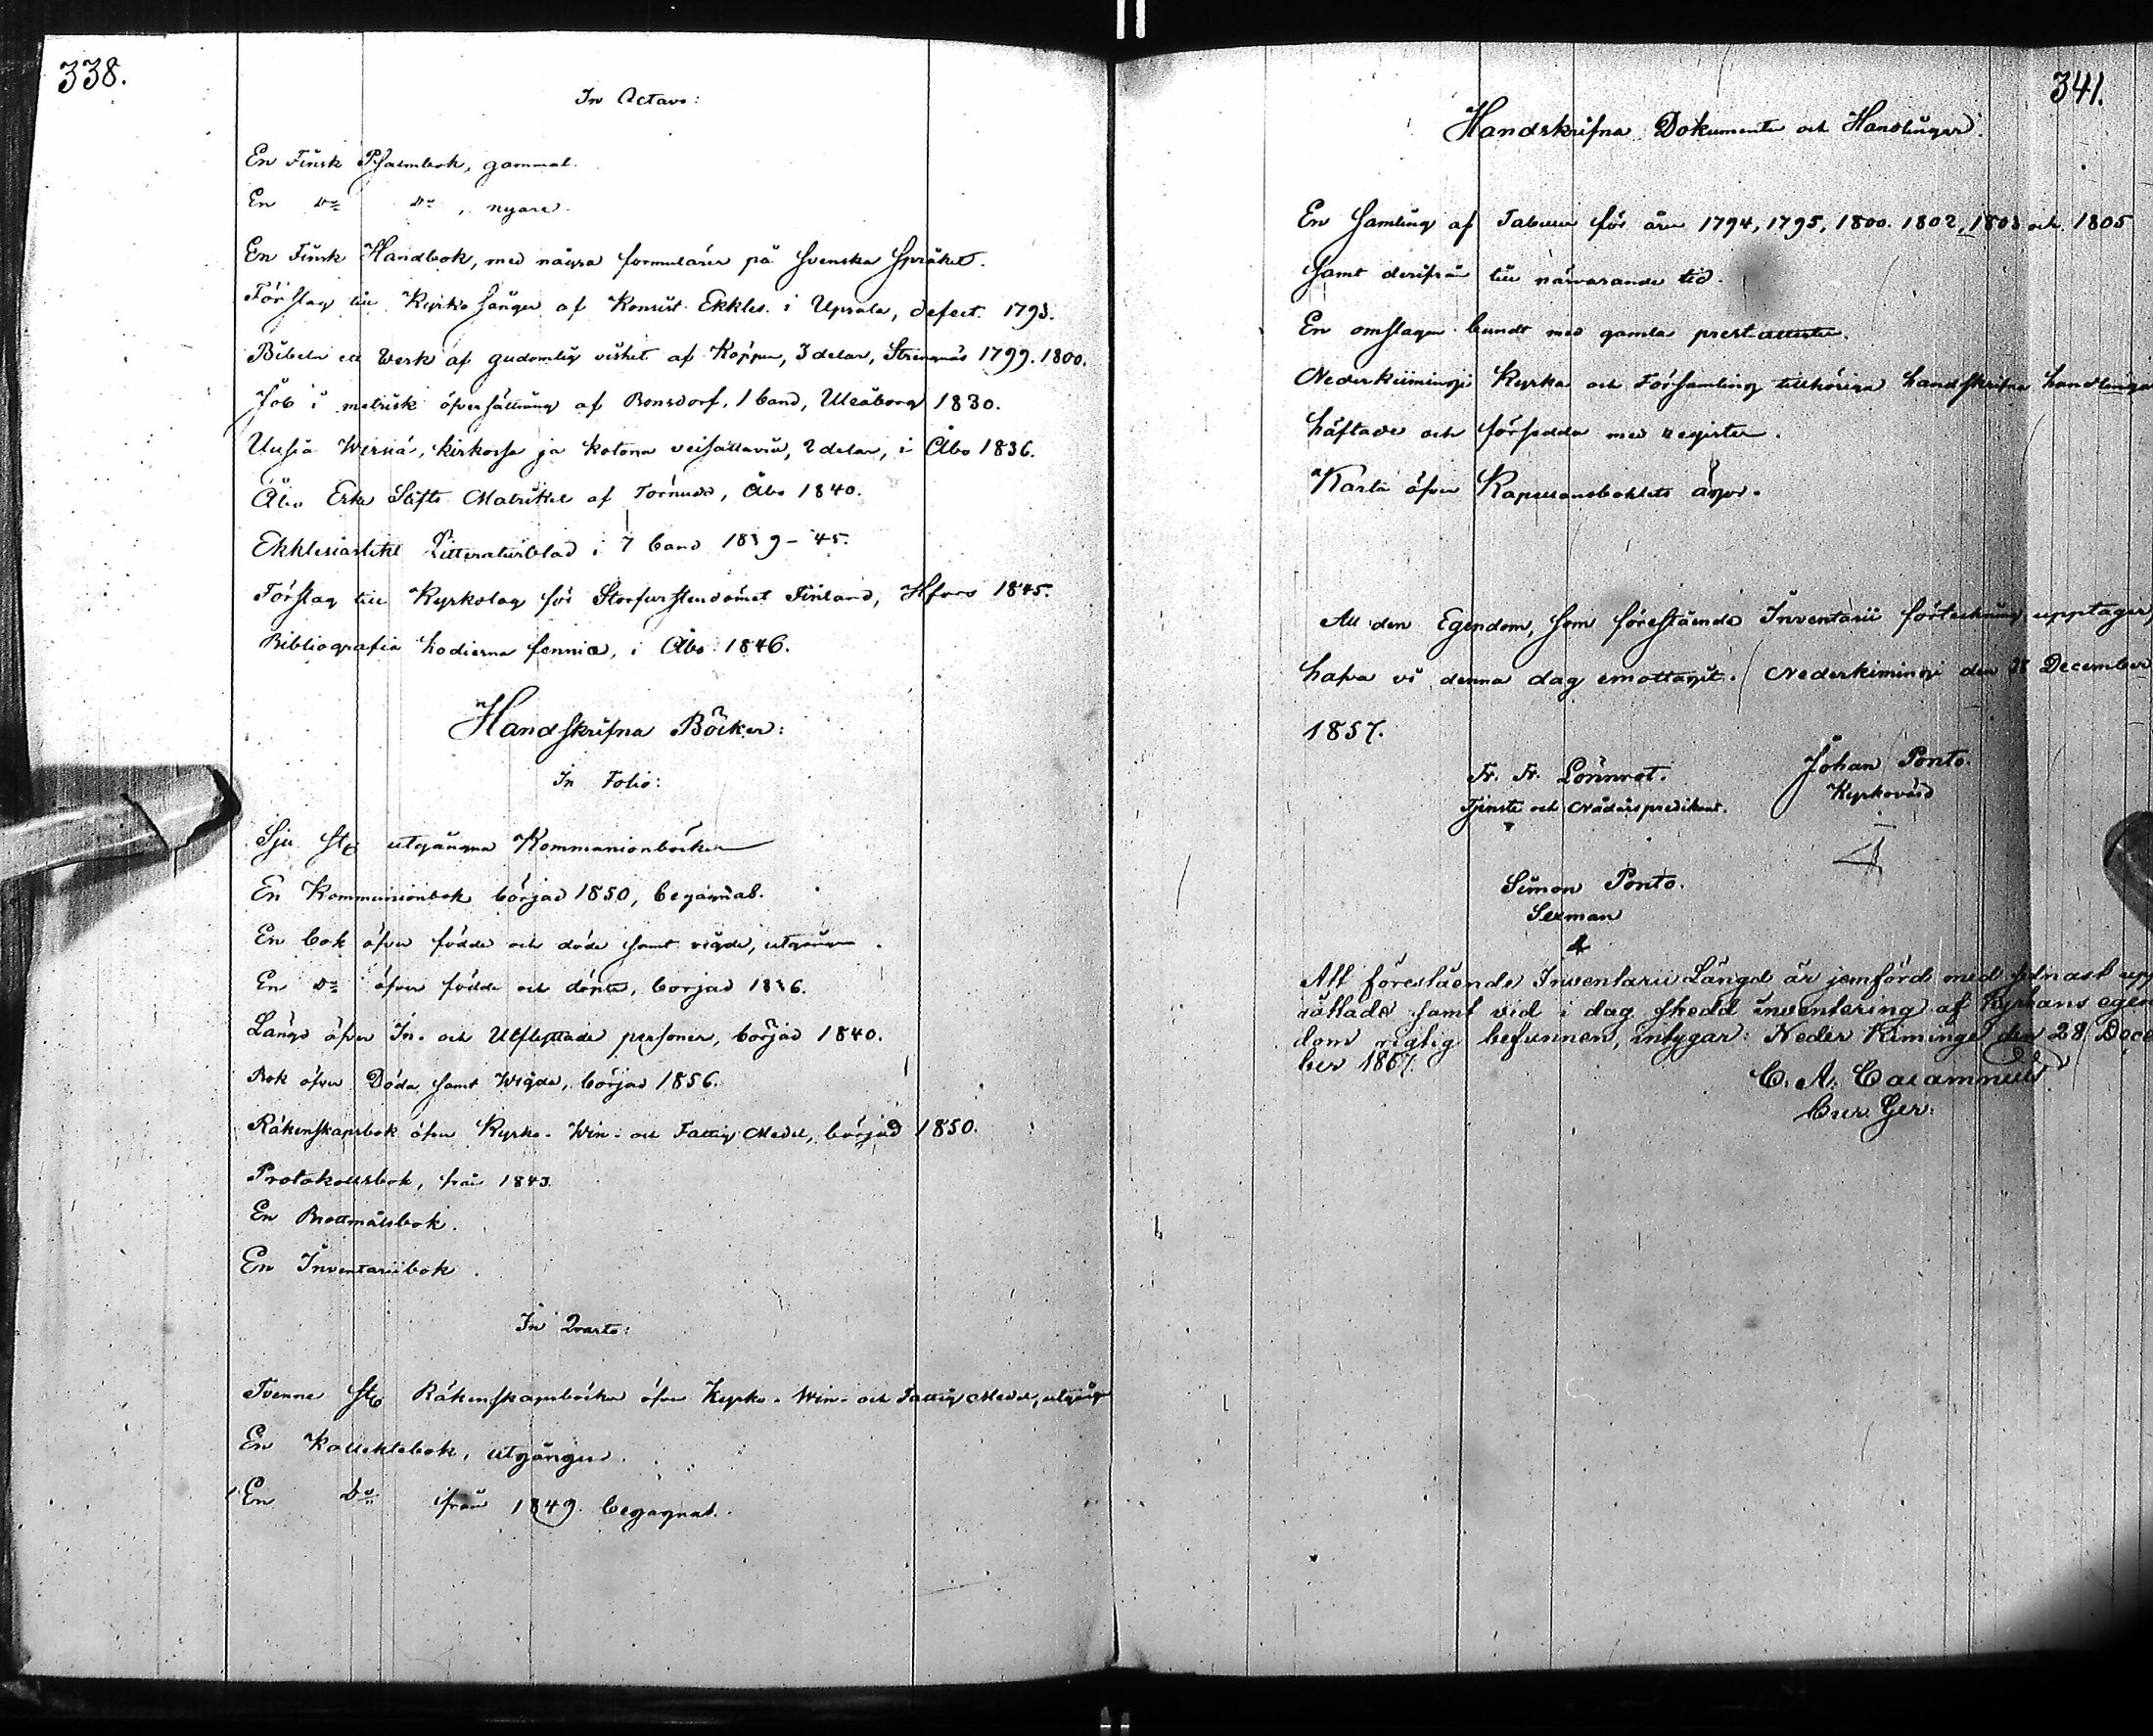 338.
In Octavo:
En Finsk Psalmbok, gammal.
En Do Do, nyare.
En Finsk Handbok, med några formulärer på Svenska Språket.
Förslag till Kyrko Sånger af Konsist. Ekkles. i Upsala, defect. 1793.
Bibeln ett Werk af gudomlig vishet af Köppen, 3 delar, Strengnäs 1799. 1800.
Job i metrisk öfversättning af Bonsdorf, 1 band, Uleåborg 1830.
Uusia Wirsiä, kirkossa ja kotona veisattavia, 2 delar, i Åbo 1836.
Åbo Erke Stifts Matrikel af Törnudd, Åbo 1840.
Ekklesiastikt Litteraturblad i 7 band 1839-45.
Förslag till Kyrkolag för Storfurstendömet Finland, Hfors 1845.
Bibliografia hodierna fennica, i Åbo 1846.
Handskrifna Böcker:
In Folio:
Sju st. utgångna Kommunionböcker
En Kommunionbok börjad 1850, begagnad.
En bok öfver födde och döde samt vigde, utgången.
En Do öfver födde och döpte, börjad 1836.
Längd öfver In- och Utflyttade personer, börjad 1840.
Bok öfver Döda samt Wigda, börjad 1856.
Räkenskapsbok öfver Kyrko- Win- och Fattig Medel, börjad 1850.
Protokollsbok, från 1843.
En Brottmålsbok.
En Inventariibok.
In Qvarto:
Tvenne st. Räkenskapsböcker öfver Kyrko- Win- och Fattig Medel, utgångn
En Kollektbok, utgången.
En Do ifrån 1849. begagnad.
341.
Handskrifna Dokumenter och Handlingar.
En Samling af Tabeller för åren 1794, 1795, 1800. 1802, 1803 och 1805
samt derifrån till närvarande tid.
En omslagen bundt med gamla prestattester.
Nederkiimingi Kyrka och Församling tillhöriga handskrifna handlingar
häftade och försedda med register.
Karta öfver Kapellansbohlets ägor.
All den Egendom, som förestående Inventarii förteckning upptager,
hafva vi denna dag emottagit. Nederkimingi den 28 December
1857.
Fr. Fr. Lönnrot. Johan Ponto.
Tjenste och Nådårspredikant. Kyrkovärd
Simon Ponto.
Sexman
Att förestående Inventarii Längd är jemförd med sednast upp
rättade samt vid i dag skedd inventering af Kyrkans egen
dom rigtig befunnen, intygar: Neder Kiminge den 28 Decem
ber 1857.
C. A. Calamnius
Cur. Ger.